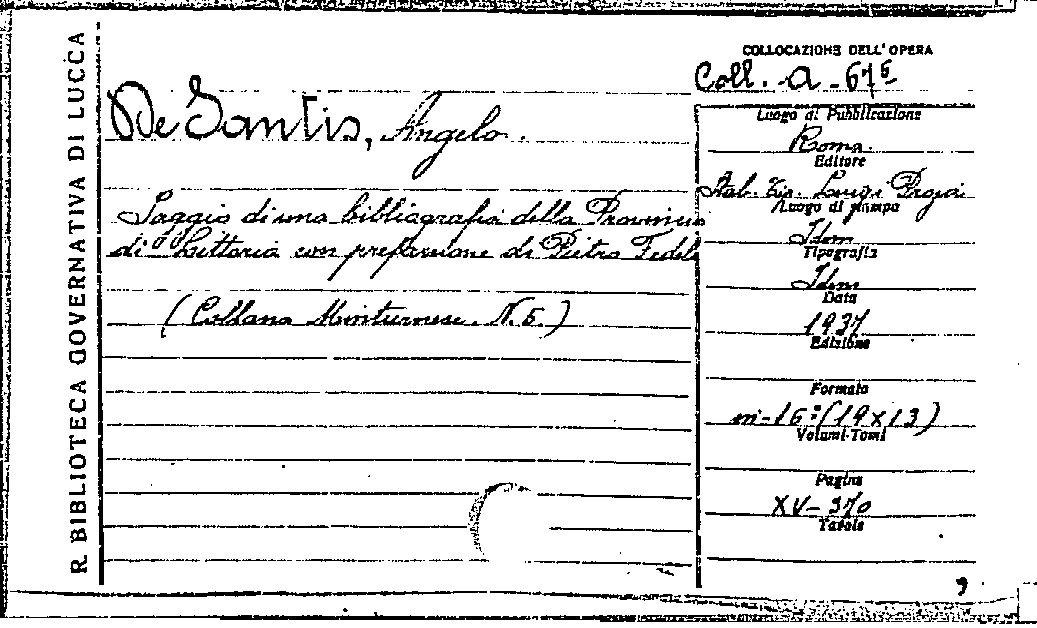 R. BIBLIOTECA GOVERNATIVA DI LUCCA
De Santis, Angelo.
Saggio di una bibliografia della Provincia
di Littoria con prefazione di Pietro Fedele
(Collana Minturnese. N. 5.)
COLLOCAZIONE DELL' OPERA
Coll. A - 67
Luogo di Pubblicazione
Roma.
Editore
Stab. Tip. Luigi Proja
Luogo di stampa
Idem
Tipografia
Idem
Data
1937
Edizione
Formato
in-16º (19 x 13)
Volumi-Tomi
Pagine
XV-370
Tavole